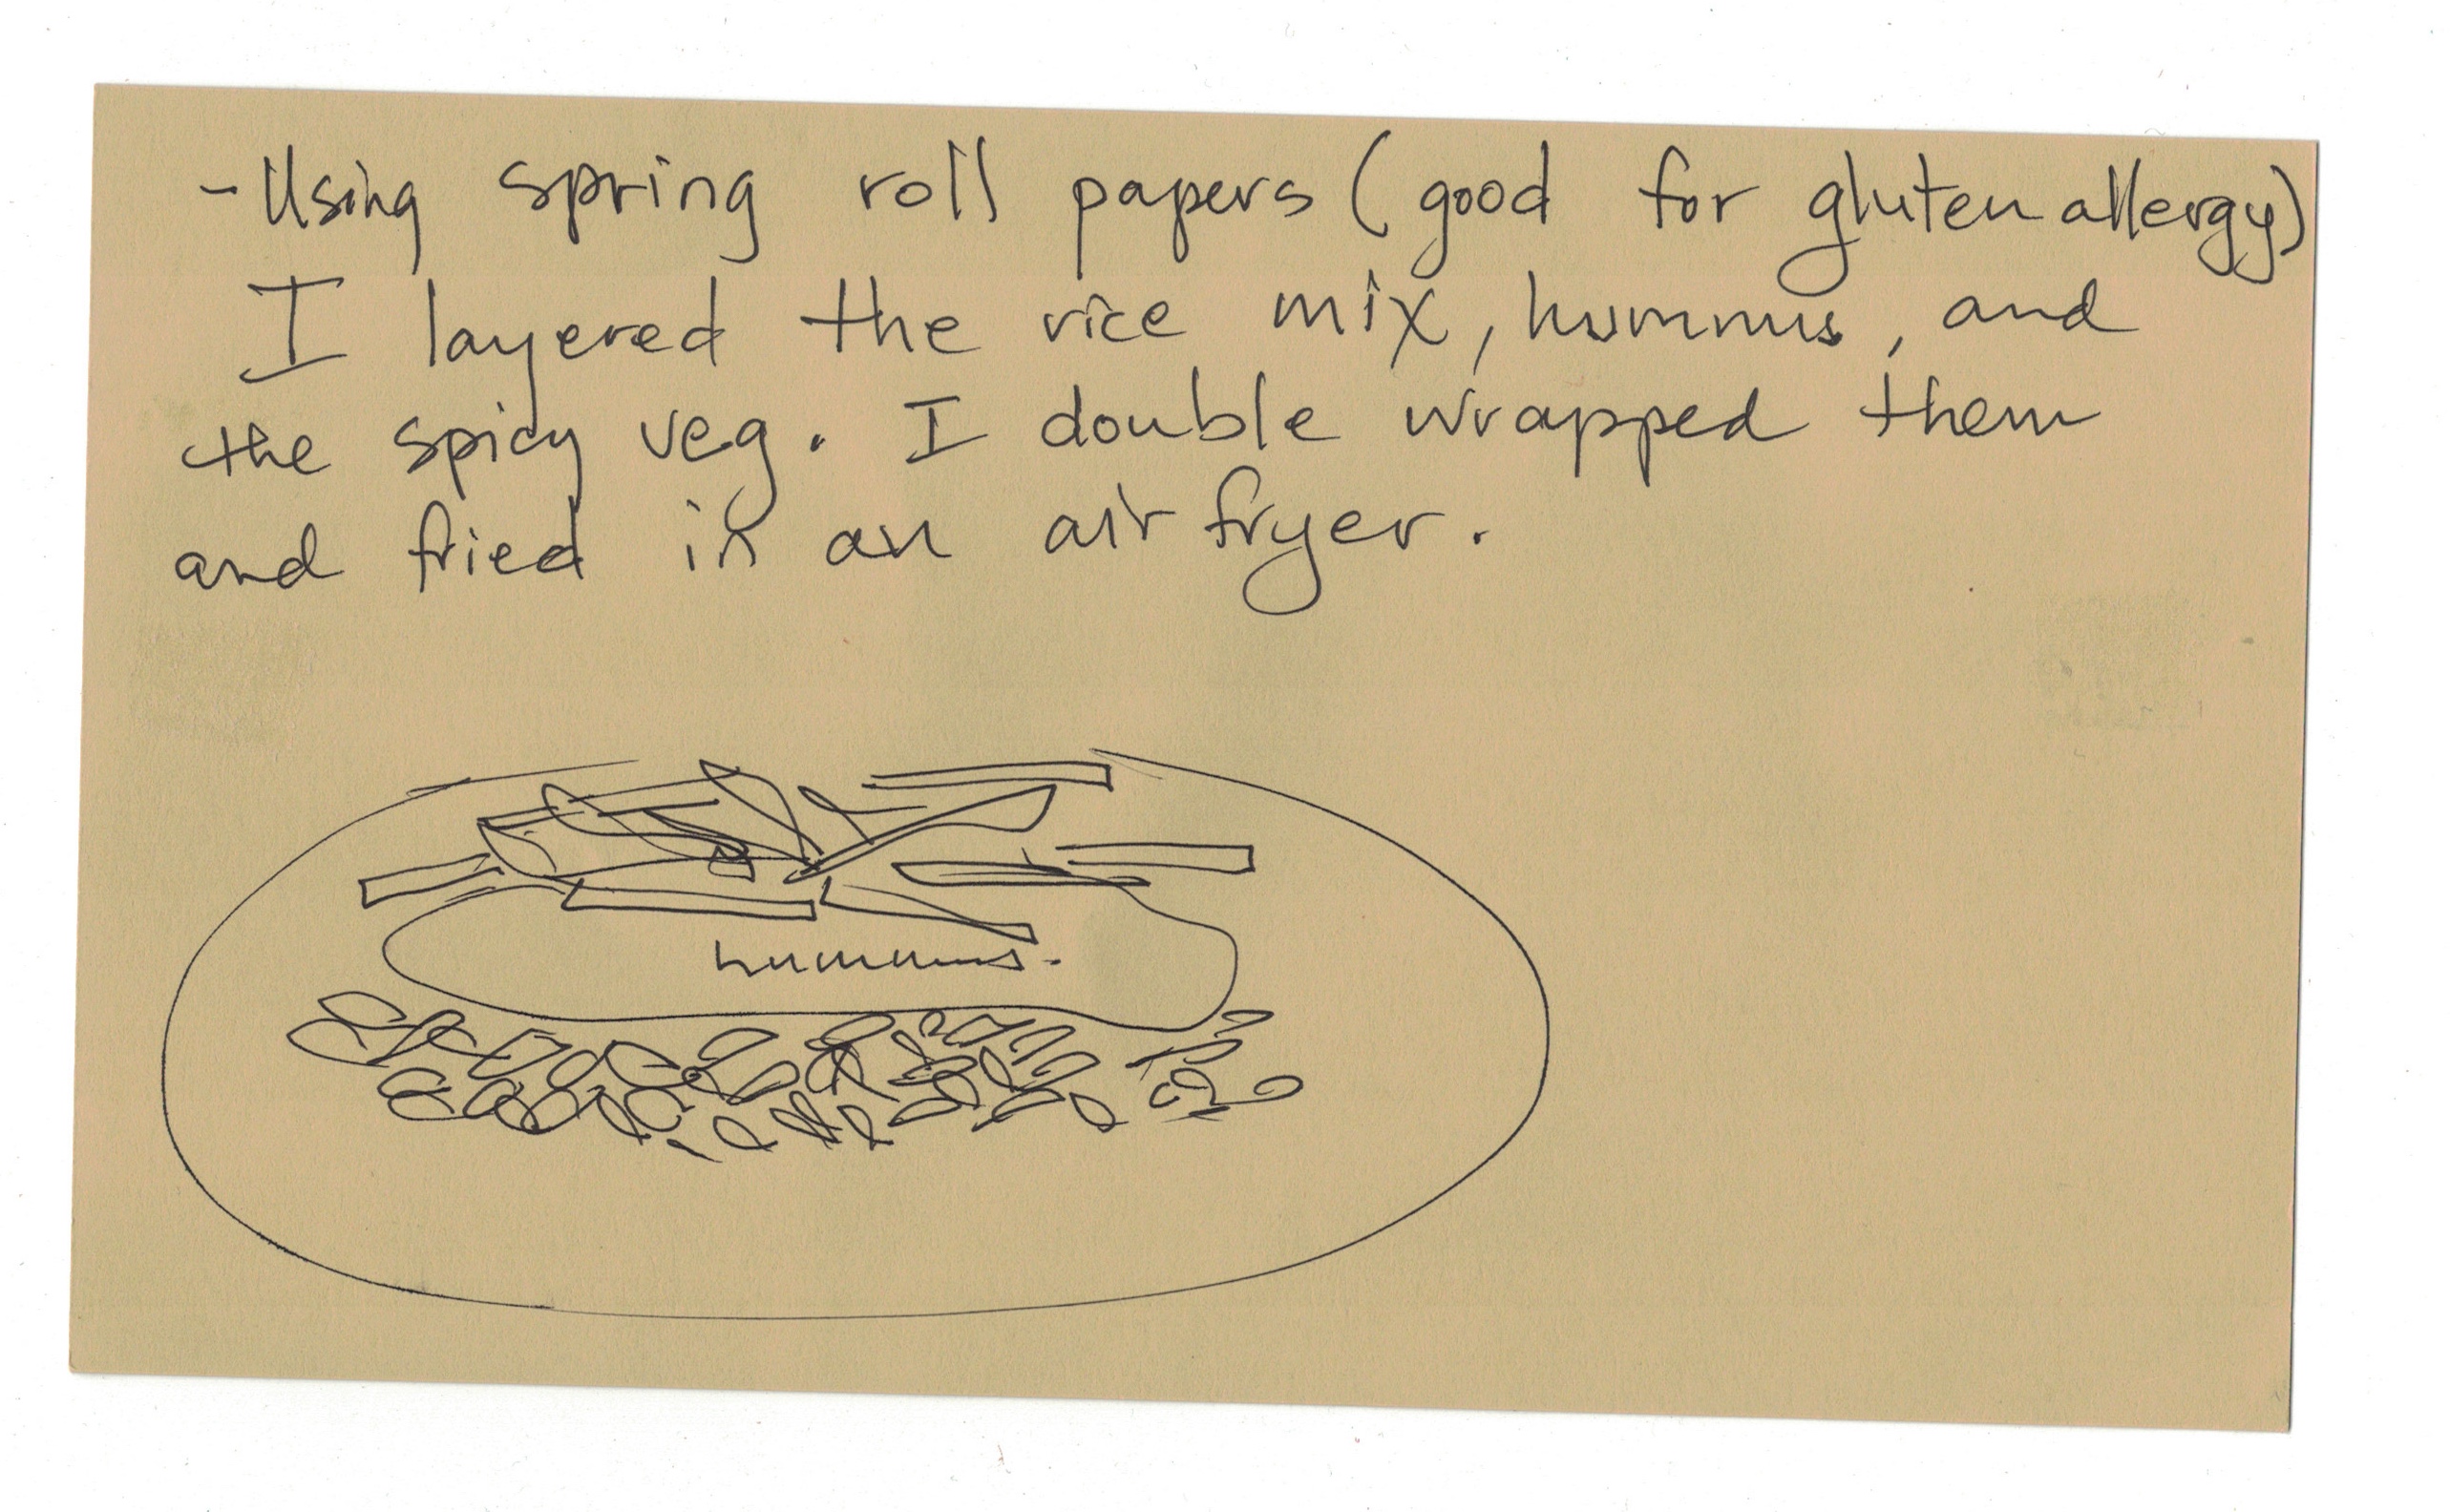 - Using spring roll papers (good for gluten allergy)
I layered the rice mix, hummus, and
the spicy veg. I double wrapped them
and fried in an air fryer.
hummus.